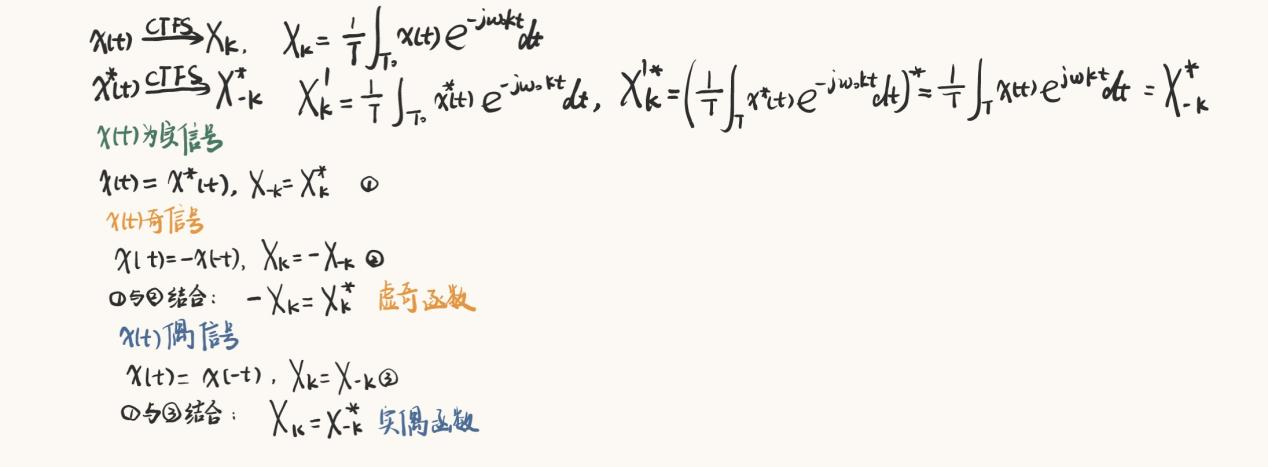 x(t) CTFS→ X_k, X_k = 1/T ∫_{T₀} x(t) e^{-jω₀kt} dt
x*(t) CTFS→ X*_{-k} X'_k = 1/T ∫_{T₀} x*(t) e^{-jω₀kt} dt, X'*_k = (1/T ∫_T x*(t) e^{-jω₀kt} dt)* = 1/T ∫_T x(t) e^{jωkt} dt = X*_{-k}
x(t)为实信号
x(t) = x*(t), X_{-k} = X*_k ①
x(t)奇信号
x(t) = -x(-t), X_k = -X_{-k} ②
①与②结合: -X_k = X*_k 虚奇函数
x(t)偶信号
x(t) = x(-t), X_k = X_{-k} ③
①与③结合: X_k = X*_{-k} 实偶函数